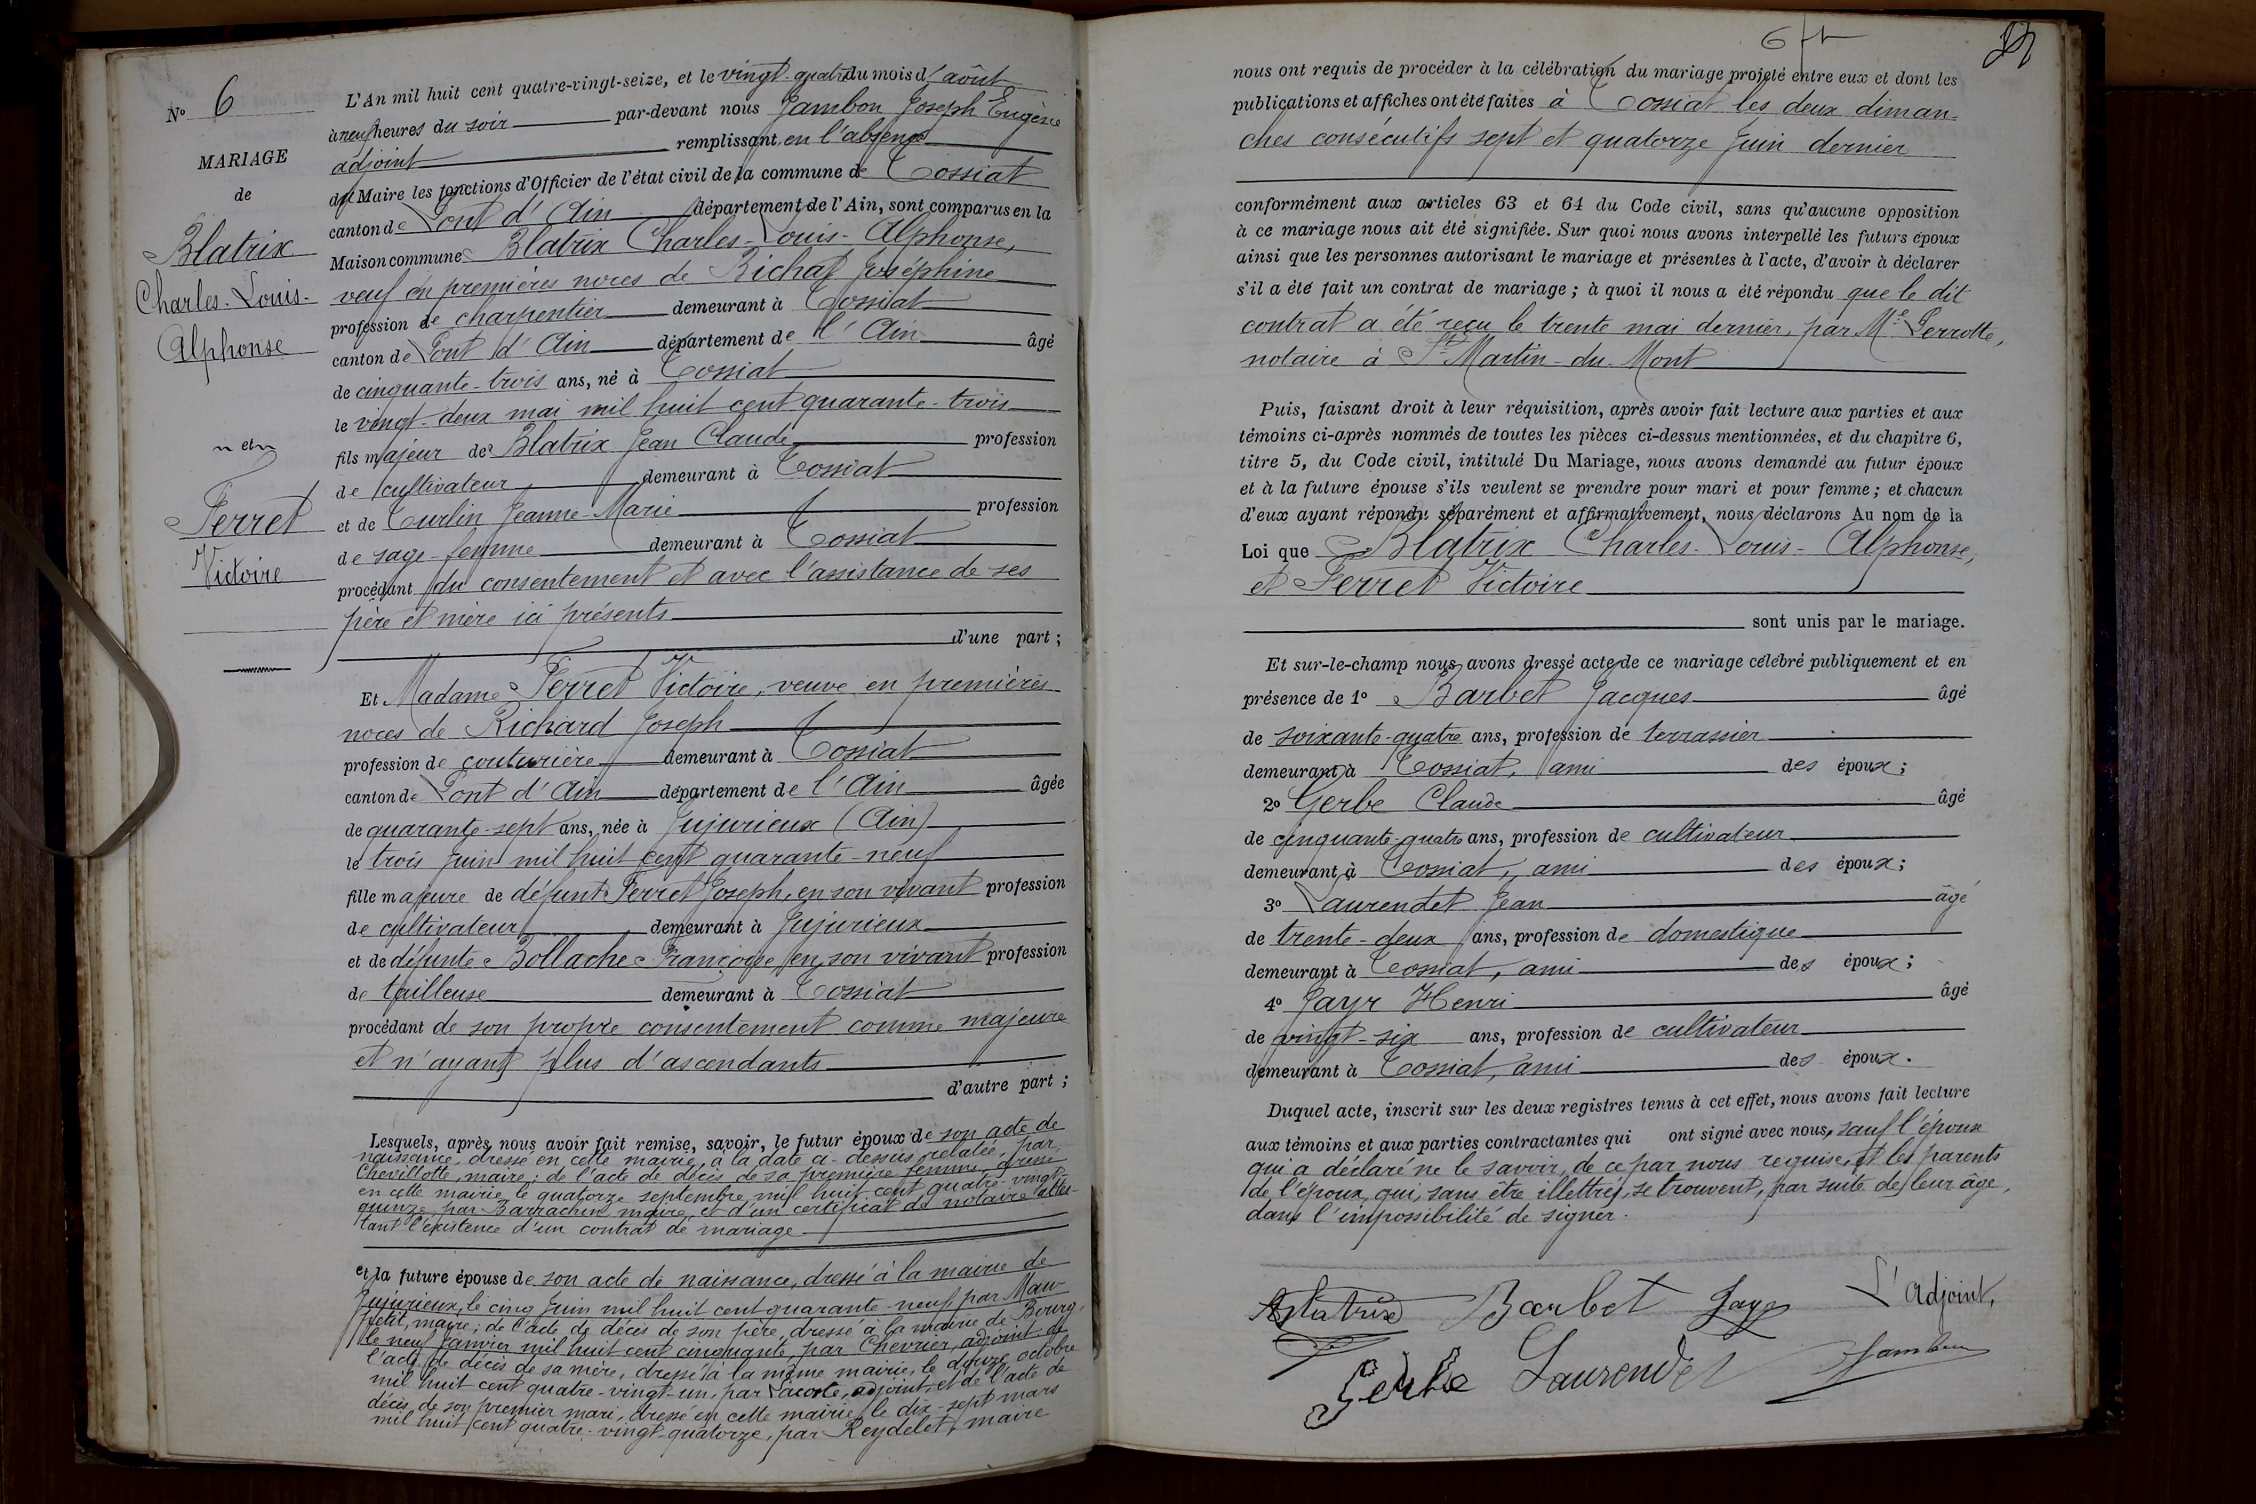 N° 6
MARIAGE
de
Blatrix
Charles-Louis-
Alphonse
et
Ferret
Victoire
L'An mil huit cent quatre-vingt-seize, et le vingt-quatre du mois d'août
à neuf heures du soir par-devant nous Jambon Joseph Eugène
adjoint remplissant en l'absence
du Maire les fonctions d'Officier de l'état civil de la commune de Tossiat
canton de Pont d'Ain département de l'Ain, sont comparus en la
Maison commune Blatrix Charles-Louis-Alphonse,
veuf en premières noces de Joséphine
profession de charpentier demeurant à Tossiat
canton de Pont d'Ain département de l'Ain âgé
de cinquante-trois ans, né à Tossiat
le vingt-deux mai mil huit cent quarante-trois
fils majeur de Blatrix Jean Claude profession
de cultivateur demeurant à Tossiat
et de Curlin Jeanne-Marie profession
de sage-femme demeurant à Tossiat
procédant du consentement et avec l'assistance de ses
père et mère ici présents
d'une part ;
Et Madame Ferret Victoire, veuve en premières
noces de Richard Joseph
profession de couturière demeurant à Tossiat
canton de Pont d'Ain département de l'Ain âgée
de quarante-sept ans, née à Jujurieux (Ain)
le trois juin mil huit cent quarante-neuf
fille majeure de défunt Ferret Joseph, en son vivant profession
de cultivateur demeurant à Jujurieux
et de défunte Bollache Françoise en son vivant profession
de tailleuse demeurant à Tossiat
procédant de son propre consentement comme majeure
et n'ayant plus d'ascendants
d'autre part ;
Lesquels, après nous avoir fait remise, savoir, le futur époux de son acte de
naissance, dressé en cette mairie, à la date ci-dessus relatée, par
Chevillotte, maire ; de l'acte de décès de sa première femme, dressé
en cette mairie le quatorze septembre mil huit cent quatre-vingt-
quinze, par Barrachin, maire, et d'un certificat de notaire attes-
tant l'existence d'un contrat de mariage
et la future épouse de son acte de naissance, dressé à la mairie de
Jujurieux, le cinq juin mil huit cent quarante-neuf par Mau-
petit, maire ; de l'acte de décès de son père, dressé à la mairie de Bourg,
le neuf janvier mil huit cent cinquante, par Chevrier, adjoint ; de
l'acte de décès de sa mère, dressé à la même mairie, le douze octobre
mil huit cent quatre-vingt-un, par Lacoste, adjoint, et de l'acte de
décès de son premier mari, dressé en cette mairie le dix-sept mars
mil huit cent quatre-vingt-quatorze, par Reydelet, maire
6
nous ont requis de procéder à la célébration du mariage projeté entre eux et dont les
publications et affiches ont été faites à Tossiat les deux diman-
ches consécutifs sept et quatorze juin dernier
conformément aux articles 63 et 64 du Code civil, sans qu'aucune opposition
à ce mariage nous ait été signifiée. Sur quoi nous avons interpellé les futurs époux
ainsi que les personnes autorisant le mariage et présentes à l'acte, d'avoir à déclarer
s'il a été fait un contrat de mariage ; à quoi il nous a été répondu que le dit
contrat a été reçu le trente mai dernier, par Me Perrotte,
notaire à St Martin-du-Mont
Puis, faisant droit à leur réquisition, après avoir fait lecture aux parties et aux
témoins ci-après nommés de toutes les pièces ci-dessus mentionnées, et du chapitre 6,
titre 5, du Code civil, intitulé Du Mariage, nous avons demandé au futur époux
et à la future épouse s'ils veulent se prendre pour mari et pour femme ; et chacun
d'eux ayant répondu séparément et affirmativement, nous déclarons Au nom de la
Loi que Blatrix Charles-Louis-Alphonse,
et Ferret Victoire
sont unis par le mariage.
Et sur-le-champ nous avons dressé acte de ce mariage célébré publiquement et en
présence de 1° Barbet Jacques âgé
de soixante-quatre ans, profession de terrassier
demeurant à Tossiat, ami des époux ;
2° Gerbe Claude âgé
de cinquante-quatre ans, profession de cultivateur
demeurant à Tossiat, ami des époux ;
3° Laurendet Jean âgé
de trente-deux ans, profession de domestique
demeurant à Tossiat, ami des époux ;
4° Jayr Henri âgé
de vingt-six ans, profession de cultivateur
demeurant à Tossiat, ami des époux.
Duquel acte, inscrit sur les deux registres tenus à cet effet, nous avons fait lecture
aux témoins et aux parties contractantes qui ont signé avec nous, sauf l'épouse
qui a déclaré ne le savoir, de ce par nous requise, et les parents
de l'époux, qui, sans être illettrés, se trouvent, par suite de leur âge,
dans l'impossibilité de signer.
Blatrix Barbet Jayr L'Adjoint,
Gerbe Laurendet Jambon